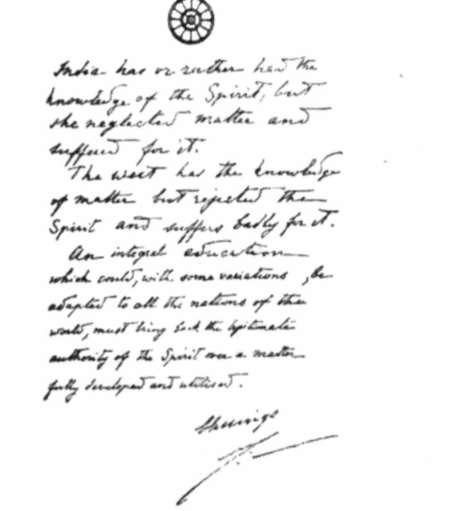 India has or rather had the
knowledge of the Spirit, but
she neglected matter and
suffered for it.
The west has the knowledge
of matter but rejected the
Spirit and suffers badly for it.
An integral education
which could, with some variations, be
adapted to all the nations of the
world, must bring back the legitimate
authority of the Spirit over a matter
fully developed and utilised.
blessings